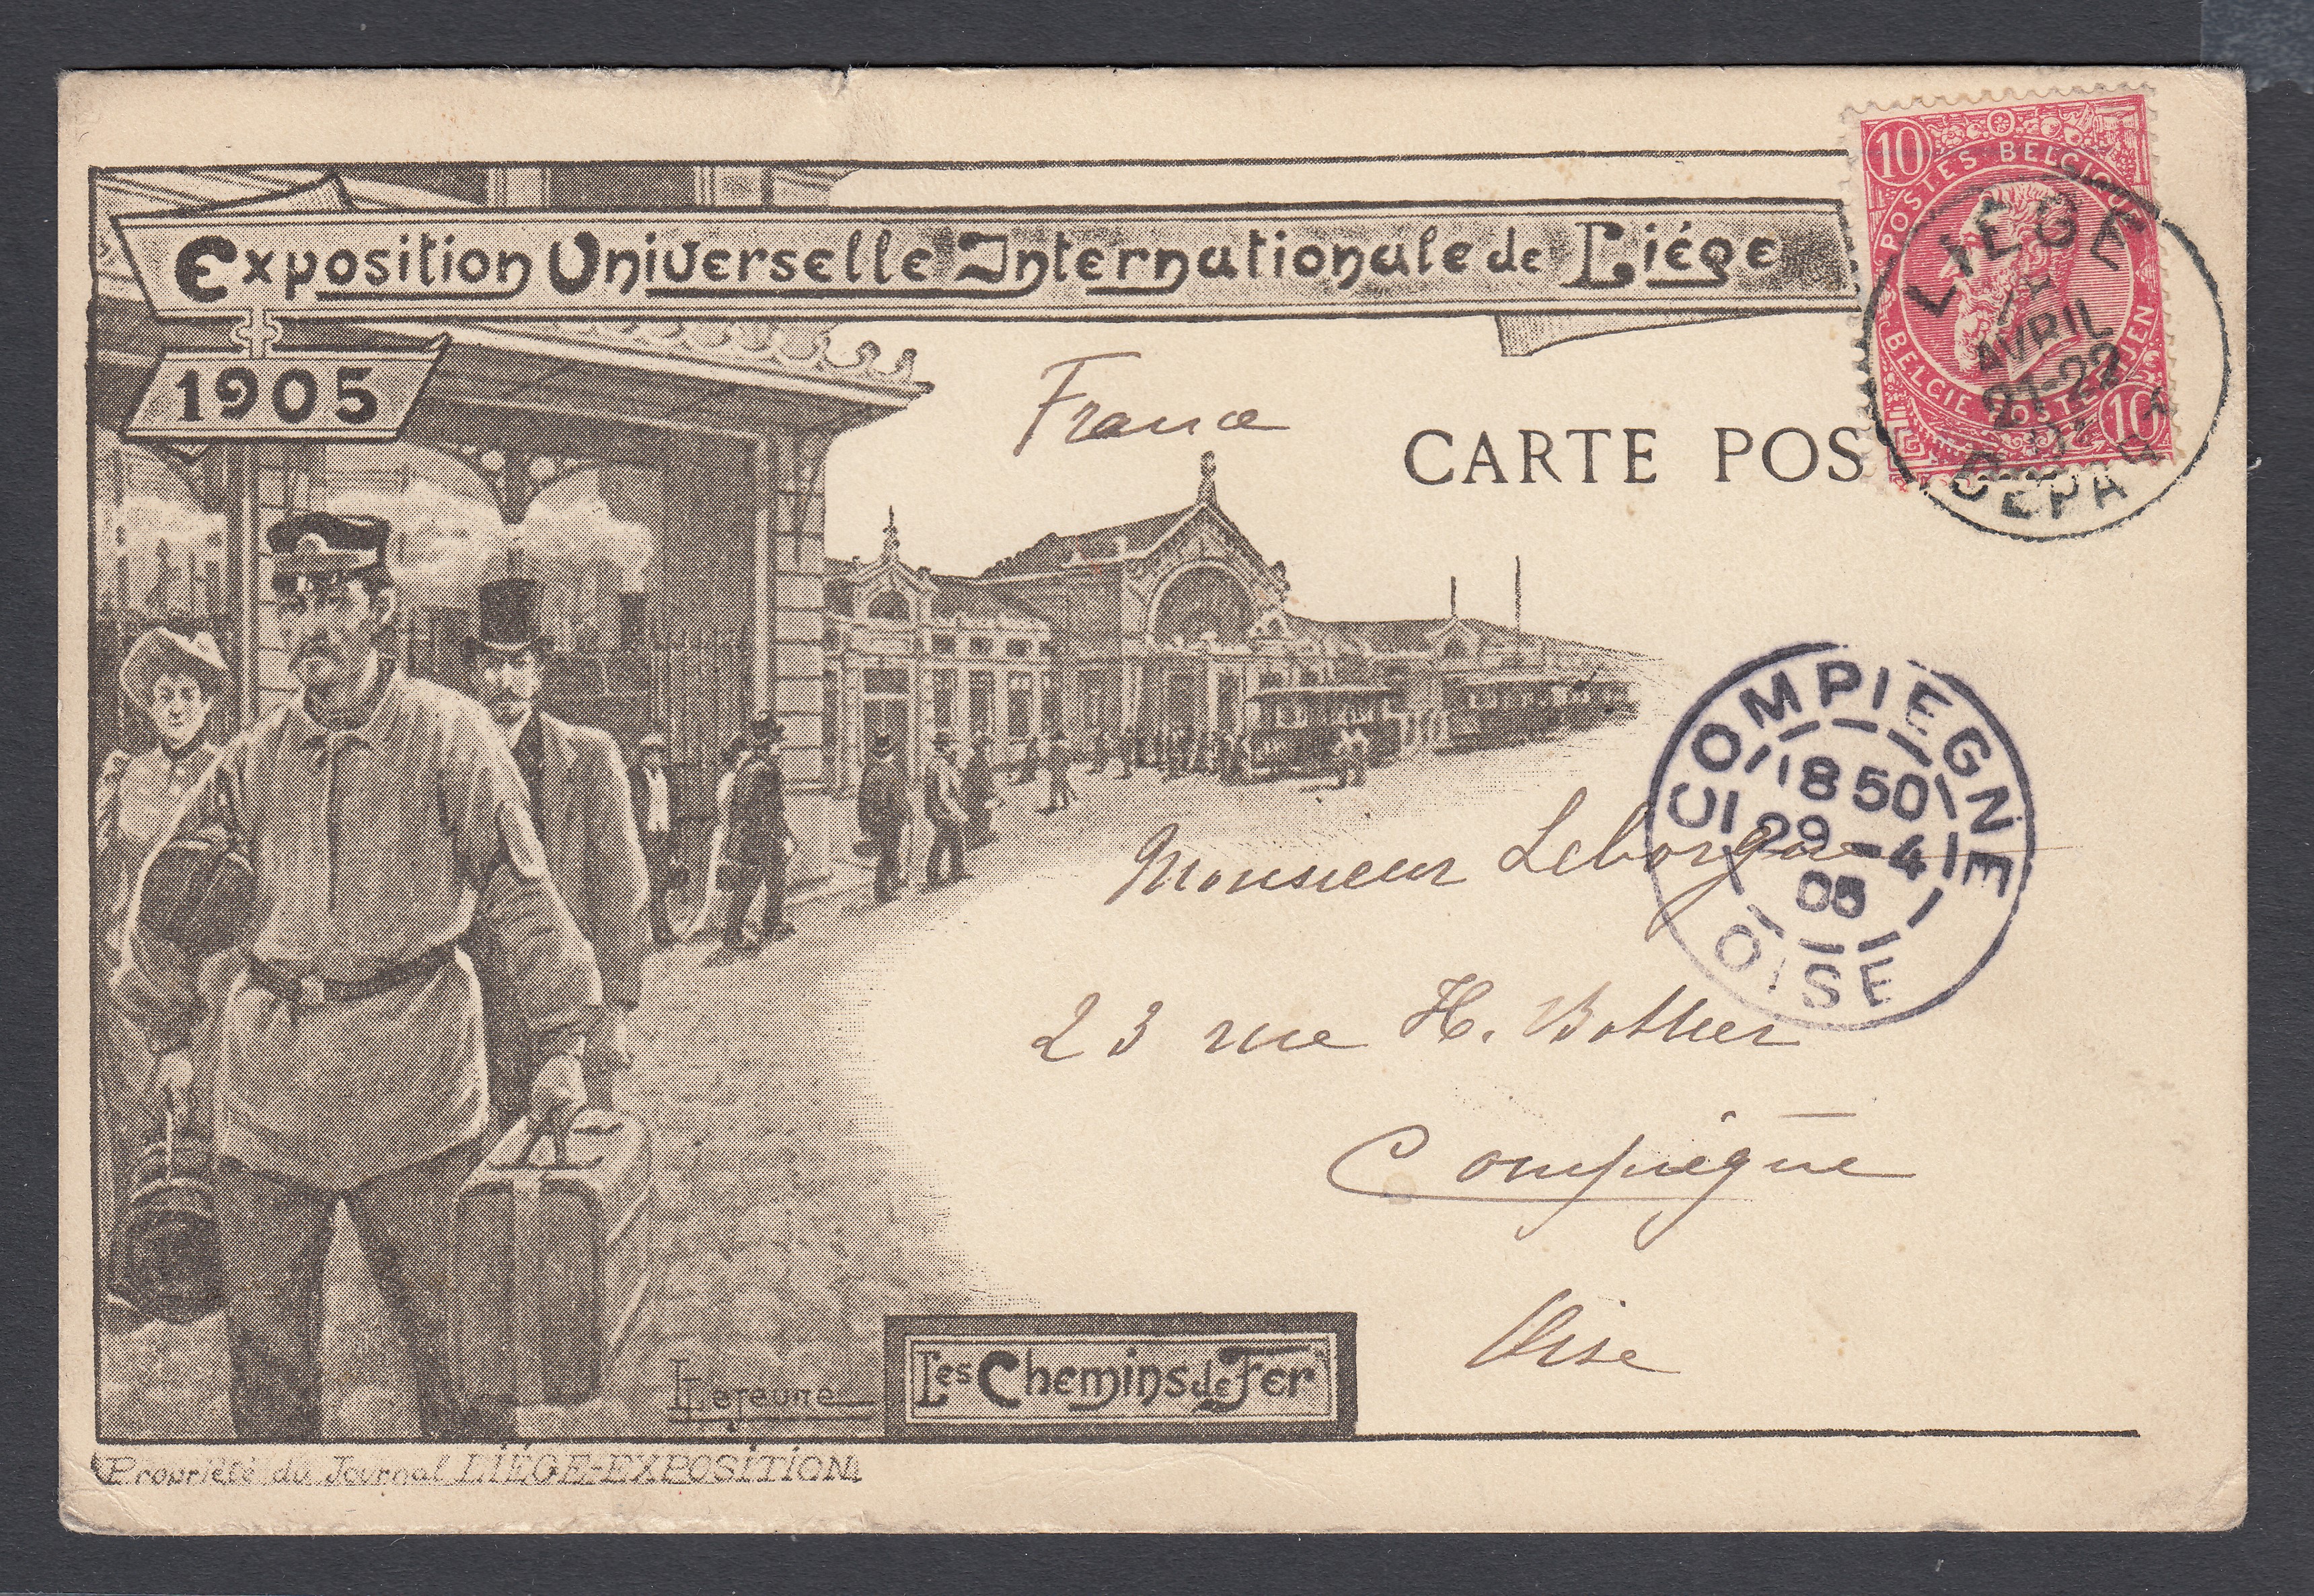 Exposition Universelle Internationale de Liége
1905
10
POSTES BELGIQUE
BELGIE POSTERIJEN
10
LIÈGE
AVRIL
21-22
DEPA
France
CARTE POS
COMPIEGNE
18 50
29-4
05
OISE
Monsieur Leborgne
23 rue H. Bottier
Compiègne
Oise
LLejeune
Les Chemins de Fer
Propriété du Journal LIÉGE-EXPOSITION